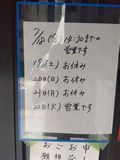 7/18(金)14:30までの
営業です
19日(土)お休み
20日(日)お休み
21日(月)お休み
22日(火)営業です